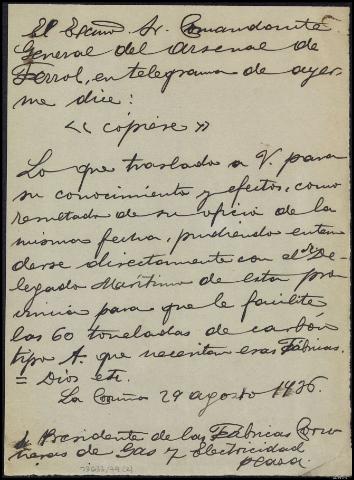 El Excmo Sr. Comandante
General del Arsenal de
Ferrol, en telegrama de ayer
me dice:
<< cópiese >>
Lo que traslado a V. para
su conocimiento y efectos, como
resultado de su oficio de la
misma fecha, pudiendo enten
derse directamente con el Sr De-
legado Marítimo de esta pro
vincia para que le facilite
las 60 toneladas de carbón
tipo A. que necesitan esas Fábricas.
= Dios etc.
La Coruña 29 agosto 1936.
Presidente de las Fábricas Coru
ñesas de Gas y Electricidad
plaza.